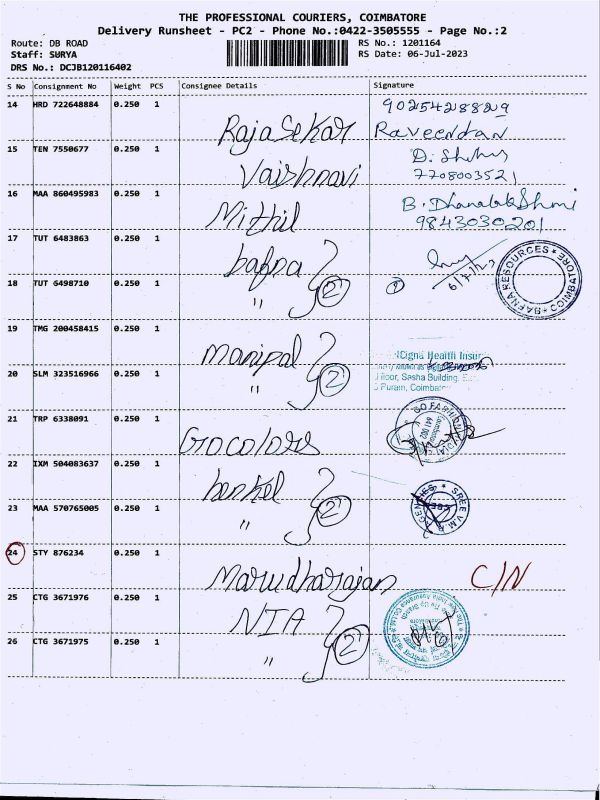 THE PROFESSIONAL COURIERS, COIMBATORE
Delivery Runsheet - PC2 - Phone No.:0422-3505555 - Page No.:2
Route: DB ROAD
Staff: SURYA
DRS No.: DCJB120116402
RS No.: 1201164
RS Date: 06-Jul-2023
S No Consignment No Weight PCS Consignee Details Signature
14 HRD 722648884 0.250 1 Rajasekar 9025428829
Raveendan
15 TEN 7550677 0.250 1 Vaishnavi
7708003521
16 MAA 860495983 0.250 1 Mithil B. Dhanalakshmi
9843030201
17 TUT 6483863 0.250 1 bafna 6/7/23
BAFNA RESOURCES * COIMBATORE *
18 TUT 6498710 0.250 1 " 2 2
19 TMG 200458415 0.250 1 Manipal
Cigna Health Insur
Floor, Sasha Building,
Puram, Coimbator
20 SLM 323516966 0.250 1 " 2
21 TRP 6338091 0.250 1 Gocolors
GO FASHION
641 002
22 IXM 504083637 0.250 1 henkel
SREE V.M. AGENCIES
23 MAA 570765005 0.250 1 " 2
24 STY 876234 0.250 1 Marudharajan C/N
25 CTG 3671976 0.250 1 NIA
26 CTG 3671975 0.250 1 " 2